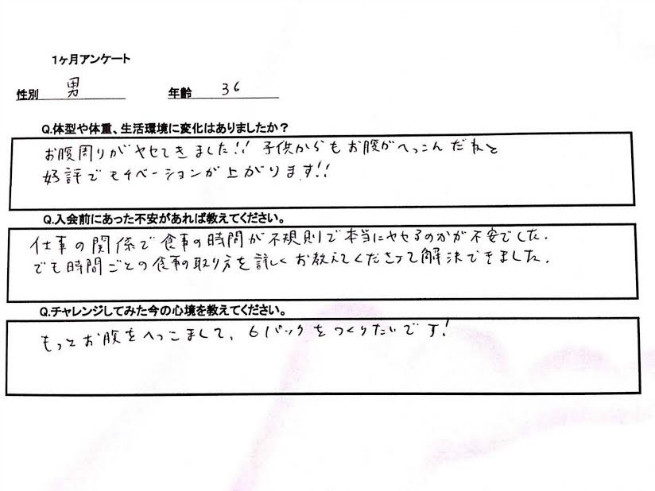 1ヶ月アンケート
性別 男 年齢 36
Q.体型や体重、生活環境に変化はありましたか？
お腹周りがヤセてきました!! 子供からもお腹がへっこんだねと
好評でモチベーションが上がります!!
Q.入会前にあった不安があれば教えてください。
仕事の関係で食事の時間が不規則で本当にヤセるのかが不安でした.
でも時間ごとの食事の取り方を詳しくお教えてくださって解決できました.
Q.チャレンジしてみた今の心境を教えてください。
もっとお腹をへっこまして、6パックをつくりたいです!